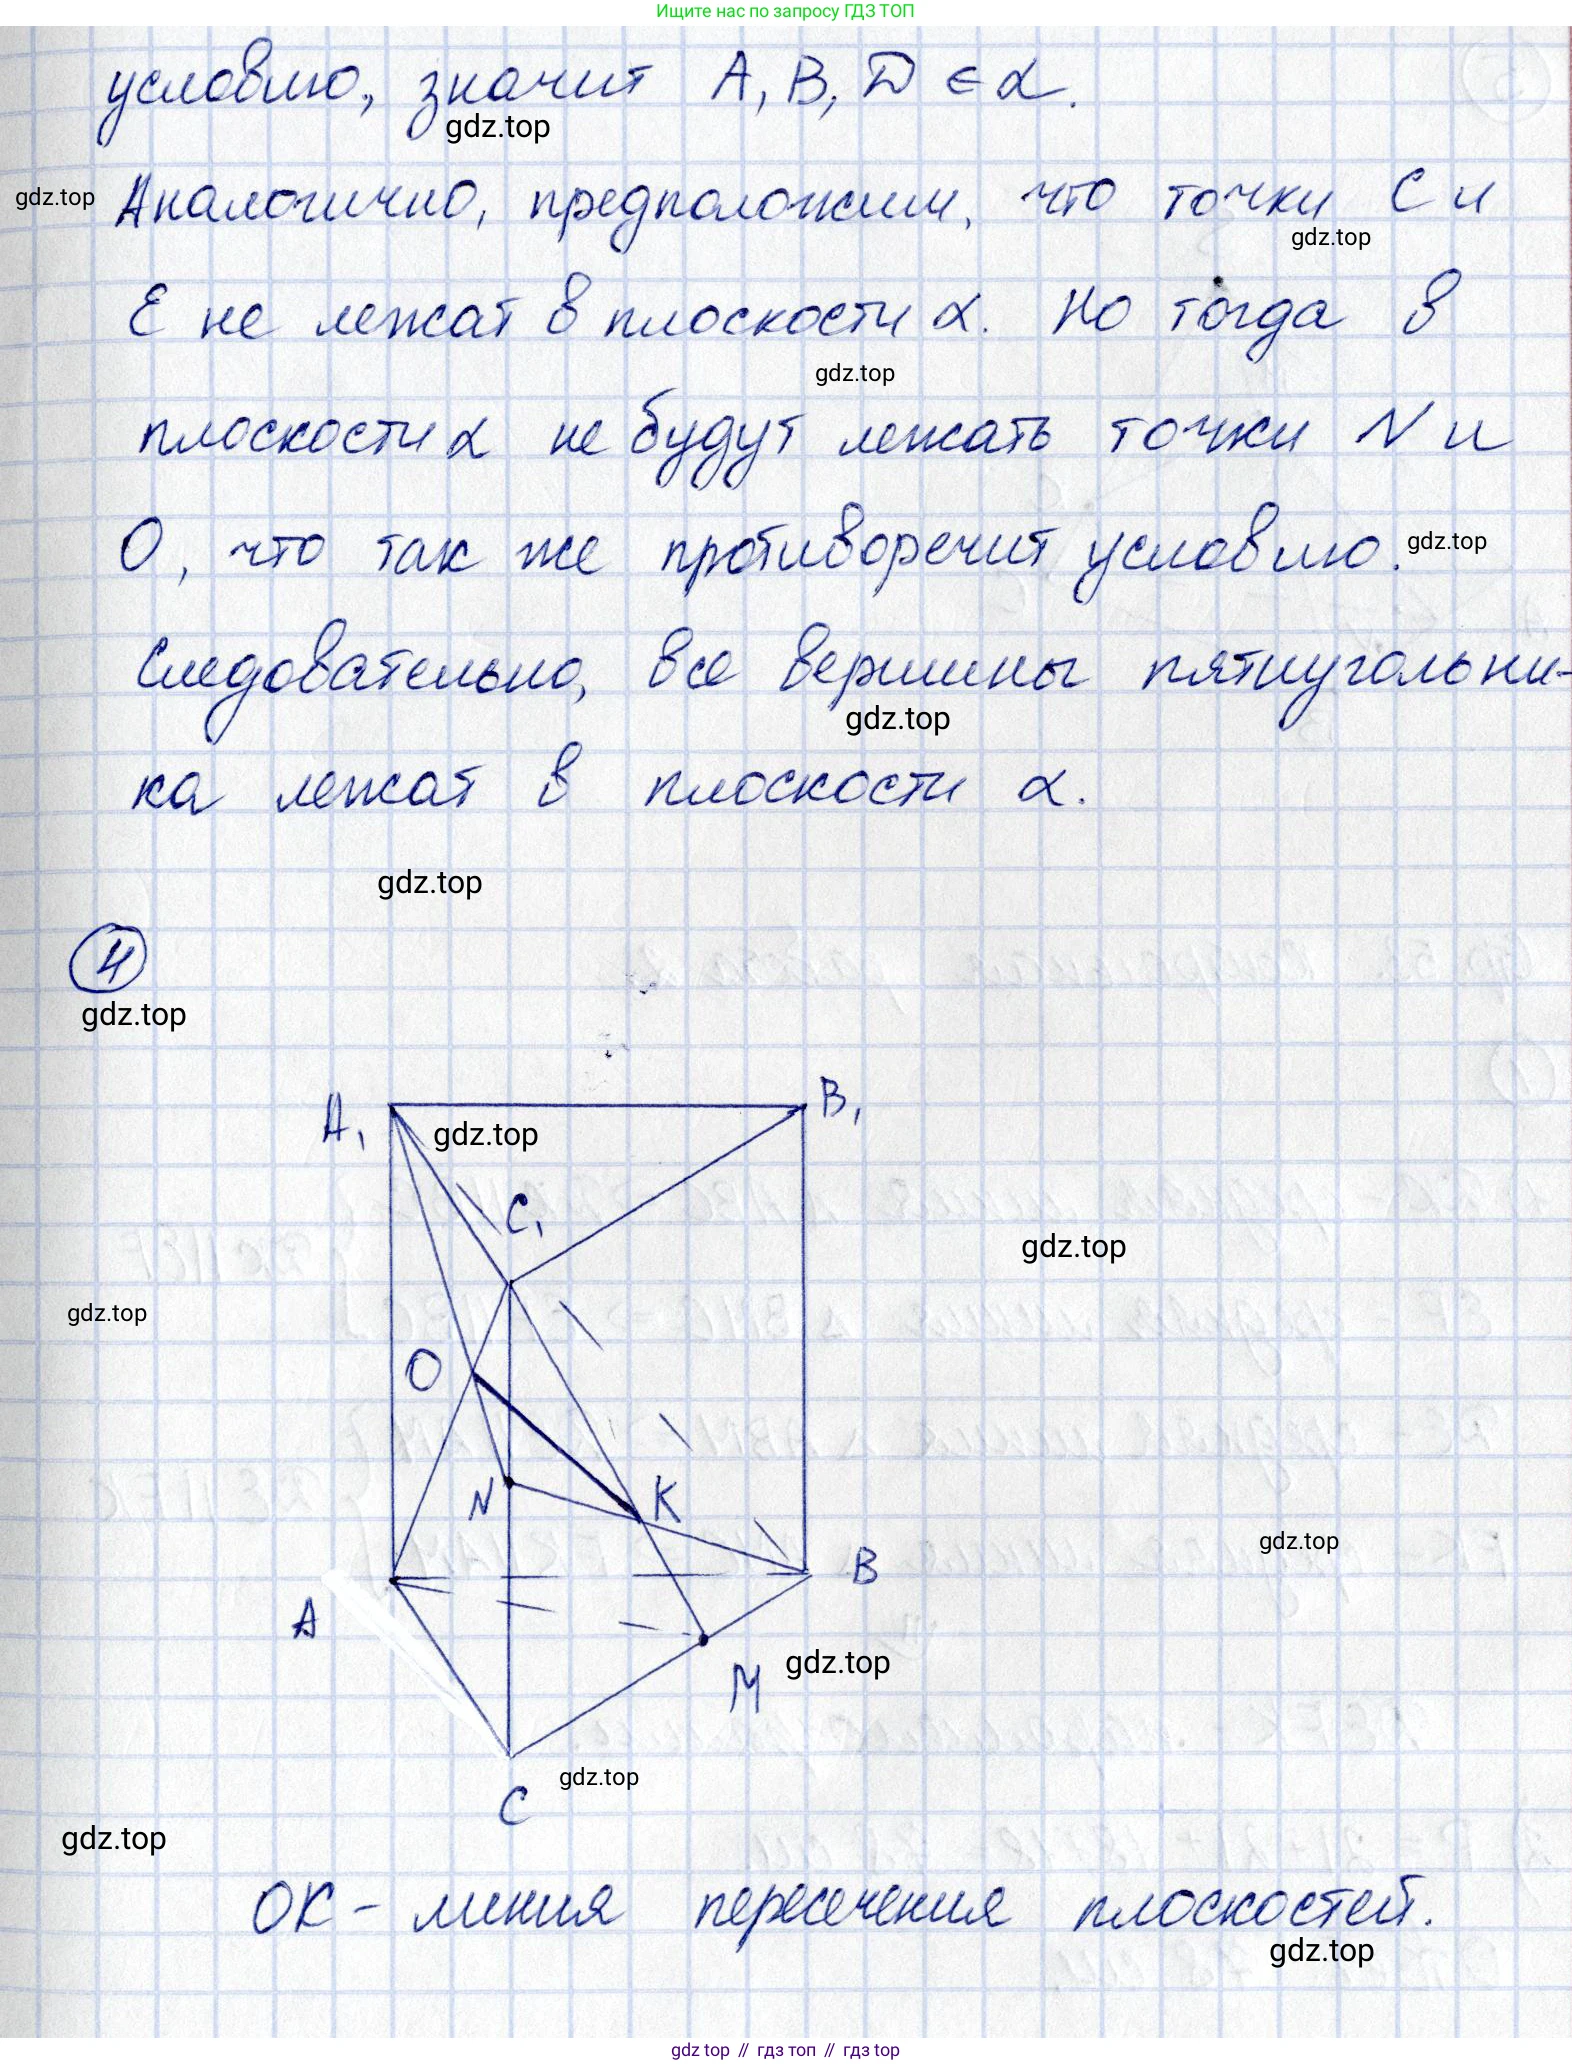 Ищите нас по запросу ГДЗ ТОП
условию, значит A, B, D ∈ α.
gdz.top
gdz.top
Аналогично, предположим, что точки C и
gdz.top
E не лежат в плоскости α. Но тогда в
gdz.top
плоскости α не будут лежать точки N и
O, что так же противоречит условию.
gdz.top
Следовательно, все вершины пятиугольни-
gdz.top
ка лежат в плоскости α.
gdz.top
4
gdz.top
A₁
B₁
gdz.top
C₁
gdz.top
gdz.top
O
N
K
gdz.top
B
A
gdz.top
M
gdz.top
C
gdz.top
OK - линия пересечения плоскостей.
gdz.top
gdz top // гдз топ // гдз top